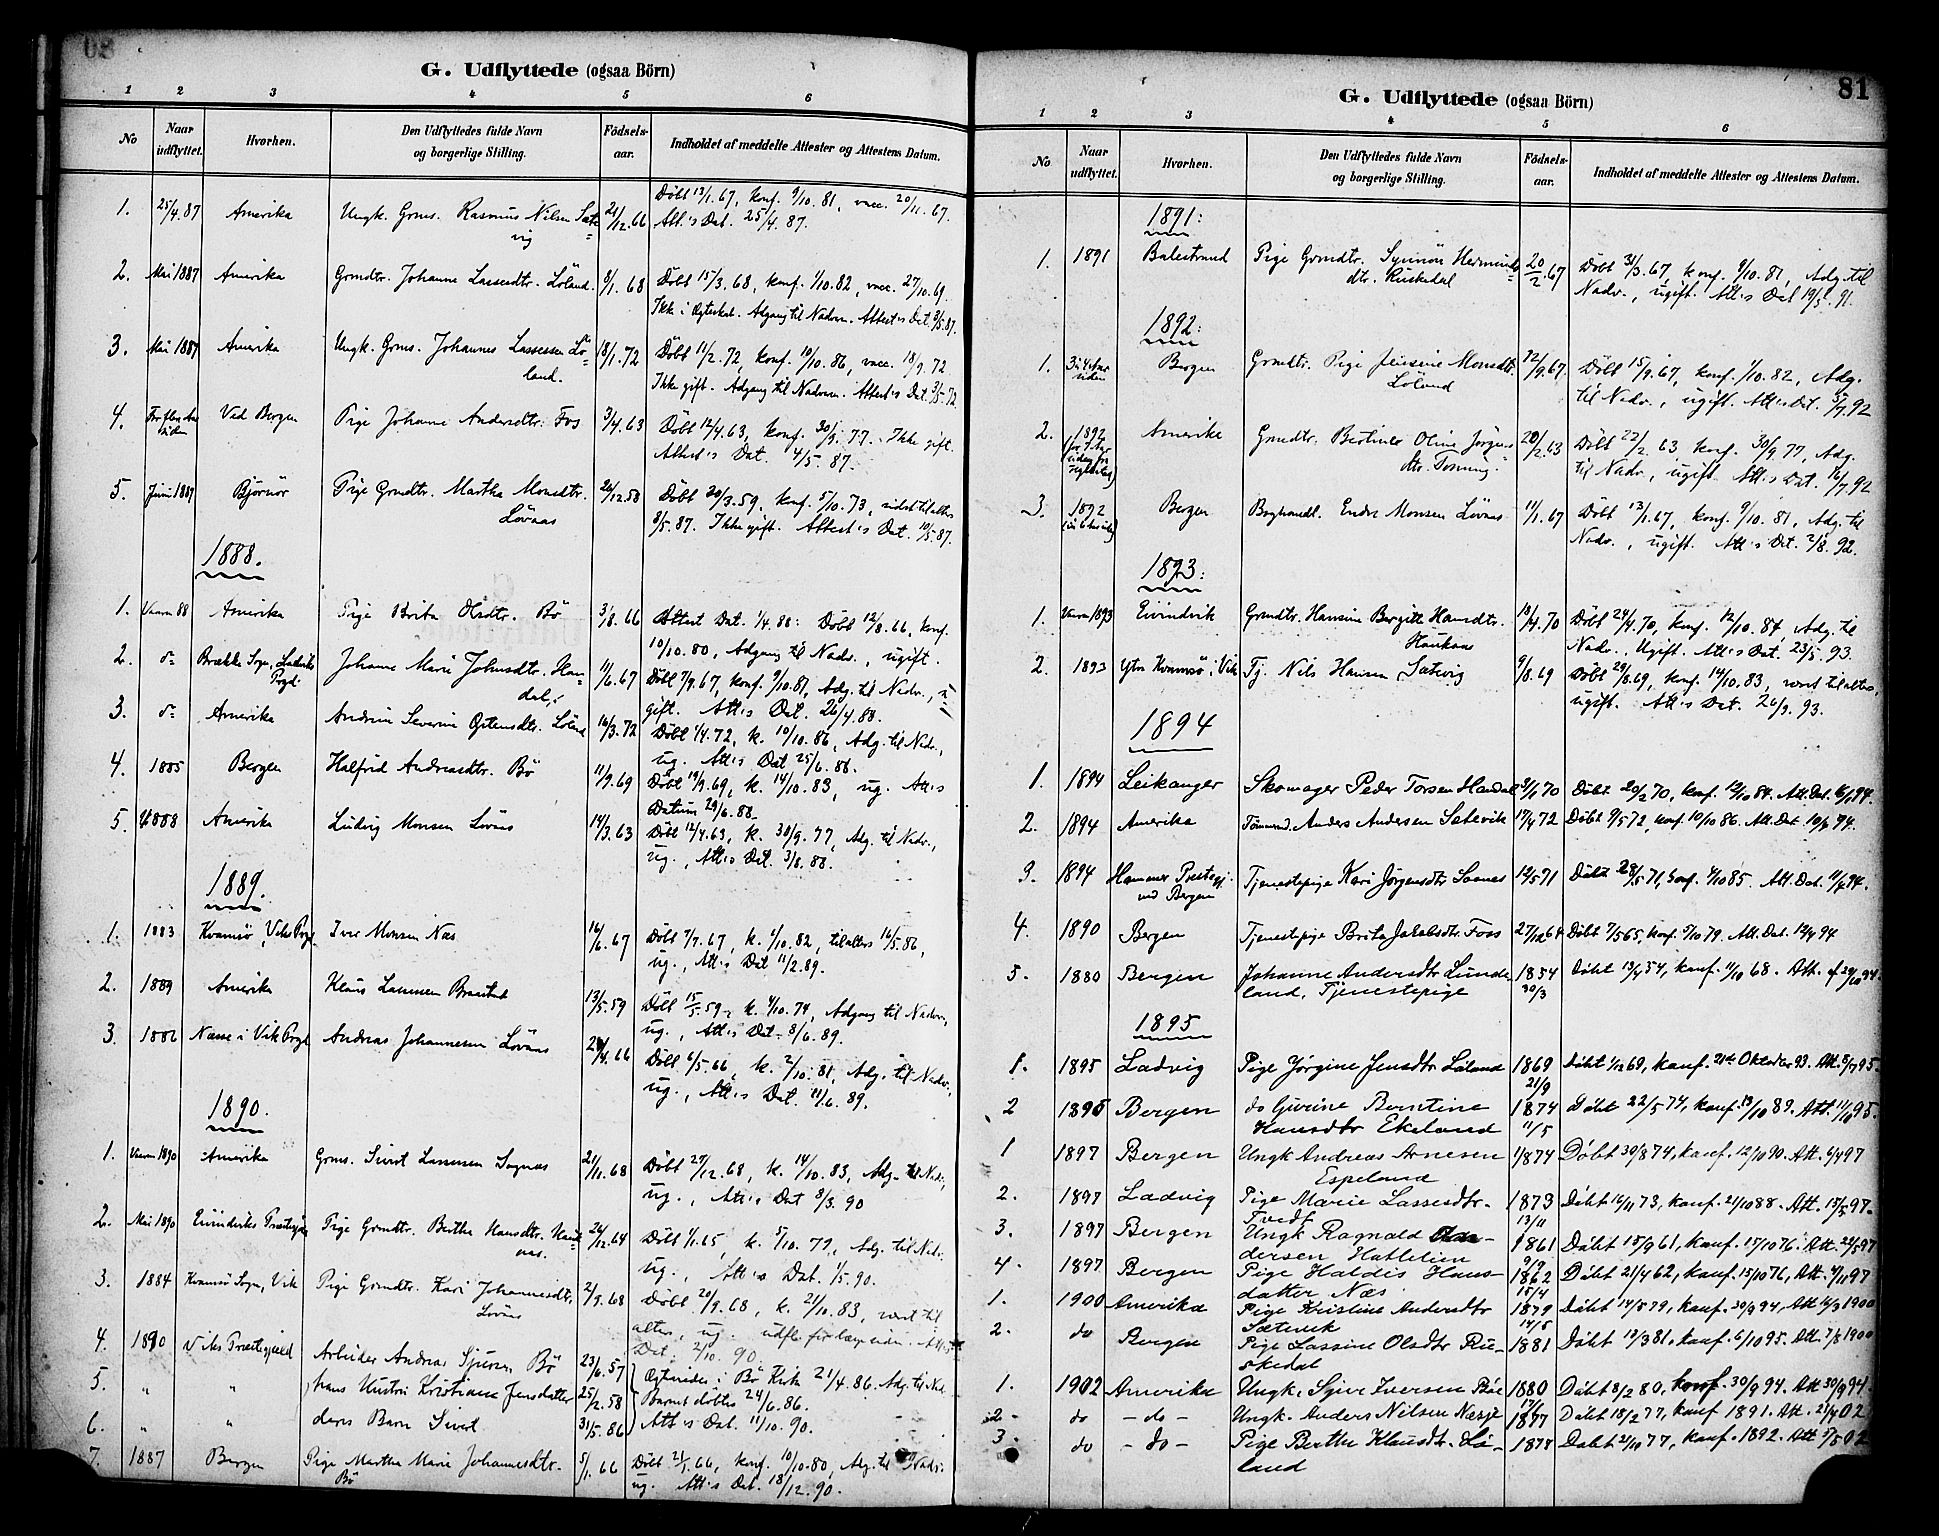 G. Udflyttede (ogsaa Börn)
1 2 3 4 5 6
No Naar udflyttet. Hvorhen. Den Udflyttedes fulde Navn og borgerlige Stilling. Födsels-aar. Indholdet af meddelte Attester og Attestens Datum.
1. 25/4.87 Amerika Ungk. Grms. Rasmus Nilsen Sæte= 21/12.66 Döbt 13/1.67, konf. 9/10.81, vacc. 20/11.67.
vig Att.s Dat. 25/4.87.
2. Mai 1887 Amerika Grmdtr. Johanne Lassesdtr. Löland. 8/1.68 Döbt 15/3.68, konf. 1/10.82, vacc. 27/10.69.
Ikke i Ægteskab. Adgang til Nadvern. Attest's Dat. 3/5.87.
3. Mai 1887 Amerika Ungk. Grms. Johannes Lassesen Lö= 18/1.72 Döbt 11/2.72, konf. 10/10.86, vacc. 18/9.72
land. Ikke gift. Adgang til Nadvern. Attest's Dat. 3/5.72
4. Ved Bergen Pige Johanne Andersdtr. Fos 3/4.63 Döbt 12/4.63, konf. 30/9.77. Ikke gift.
Attest's Dat. 4/5.87.
5. Juni 1887 Björnör Pige Grmdtr. Martha Monsdtr. 26/12.58 Döbt 20/3.59, konf. 5/10.73, sidst til alters
Lövaas 8/5.87. Ikke gift. Attest's Dat. 10/5.87.
1888.
1. Vaaren 88 Amerika Pige Brita Olsdtr. Bö 3/8.66 Attest Dat. 1/4.88: Döbt 12/8.66, konf.
10/10.80, Adgang til Nadv., ugift.
2. do Brække Sogn, Ladviks Prgl. Johanne Marie Johnsdtr. Han= 11/6.67 Döbt 7/9.67, konf. 9/10.81, Adg. til Nadv., u=
dal, gift. Att.s Dat. 26/4.88.
3. do Amerika Andrine Severine Östensdtr. Löland 16/3.72 Döbt 1/4.72, k. 10/10.86, Adg. til Nadv.,
ug. Att.s Dat 25/6.88.
4. 1885 Bergen Halfrid Andreasdtr. Bö 11/9.69 Döbt 19/9.69, k. 14/10.83, ug. Att.s
Datum 29/6.88.
5. 1888 Amerika Ludvig Monsen Lövaas 14/3.63 Döbt 12/4.63, k. 30/9.77, Adg. til Nadv.,
ug., Att.s Dat. 3/8.88.
1889.
1. 1883 Kvamsö, Viks Prgl. Iver Monsen Næs 16/6.67 Döbt 7/7.67, k. 1/10.82, til alters 16/5.86,
ug., Att.s Dat 11/2.89.
2. 1889 Amerika Klaus Lassesen 13/5.59 Döbt 15/5.59, k. 4/10.74, Adgang til Nadv.,
ug., Att.s Dat. 8/6.89.
3. 1886 Næsse i Vik Prgl. Andreas Johannesen Lövaas 24/4.66 Döbt 6/5.66, k. 2/10.81, Adg. til Nadv.,
ug., Att.s Dat. 11/6.89.
1890.
1. Vaaren 1890 Amerika Grms. Sivert Lassesen 21/11.68 Döbt 27/12.68, k. 14/10.83, Adg. til Nadv.,
ug., Att.s Dat 8/3.90
2. Mai 1890 Evindviks Præstegj. Pige Grmdtr. Berthe Hansdtr. Hauk= 26/12.64 Döbt 1/1.65, k. 5/10.79, Adg. til Nadv.
aas. ug., Att.s Dat. 1/5.90.
3. 1884 Kvamsö Sogn, Vik Pige Grmdtr. Kari Johannesdtr. 2/9.68 Döbt 20/9.68, k. 21/10.83, været til
Lövaas alters, ug. udfl. for længe siden. Att.s
Dat. 2/10.90.
4. 1890 Viks Præstegjæld Arbeider Andreas Sjursen Bö 23/6.57 Ægteviede i Bö Kirk 21/4.86. Adg. til Nad.
5. " " hans Hustru Kristiane Jensdatter 25/2.58 Barnet döbtes 24/6.86.
6. " " deres Barn Sivert 31/5.86 Att.s Dat. 11/10.90.
7. 1887 Bergen Pige Martha Marie Johannesdtr. 5/1.66 Döbt 21/1.66, konf. 10/10.80, Adg. til Nadv.
Bö ug. Att.s Dat. 18/12.90.
81
G. Udflyttede (ogsaa Börn)
1 2 3 4 5 6
No Naar udflyttet. Hvorhen. Den Udflyttedes fulde Navn og borgerlige Stilling. Födsels-aar. Indholdet af meddelte Attester og Attestens Datum.
1891:
1. 1891 Balestrand Pige Grmdtr. Synnöv Hermunds= 20/2.67 Döbt 31/3.67, konf. 9/10.81, Adg. til
dtr. Ruskedal Nadv., ugift. Att.s Dat 19/5.91.
1892:
1. Bergen Grmdtr. Pige Jensine Monsdtr. 12/9.67. Döbt 15/9.67, konf. 1/10.82, Adg.
Löland til Nadv., ugift. Att.s Dat. 5/7.92
2. 1892 Amerika Grmdtr. Bertine Oline Jörgens 20/2.63 Döbt 22/2.63, konf. 30/9.77, Adg.
dtr. Tonning. til Nadv., ugift. Att.s Dat. 16/7.92
3. 1892 Bergen Boghandl. Endre Monsen Lövaas 11/1.67 Döbt 13/1.67, konf. 9/10.81, Adg. til
Nadv., ugift. Att.s Dat. 2/8.92.
1893:
1. Vaaren 1893 Eivindvik Grmdtr. Hansine Bergitte Hansdtr. 18/4.70 Döbt 24/4.70, konf. 12/10.84, Adg. til
Haukaas Nadv., Ugift. Att.s Dat. 23/5.93.
2. 1893 Ytre Kvamsö i Vik Tj. Nils Hansen Sætevig 9/8.69 Döbt 29/8.69, konf. 14/10.83, været til alters,
ugift. Att.s Dat. 26/9.93.
1894
1. 1894 Leikanger Skomager Peder Torsen Handal 31/1 70 Döbt 20/2 70, konf. 12/10 84. Att. Dat. 16/1 94.
2. 1894 Amerika Tömmermd. Anders Andersen Sætevik 17/4 72 Döbt 9/5 72, konf 10/10 86. Att. Dat 10/4 94.
3. 1894 Hammer Prestegj. Tjenestepige Kari Jörgensdtr 12/5 71 Döbt 28/5 71, konf. 4/10 85. Att. Dat. 11/4 94.
ved Bergen
4. 1890 Bergen Tjenestepige Brita Jakobsdtr. Foss 27/12 64 Döbt 7/5 65, konf. 5/10 79. Att. Dat. 12/4 94.
5. 1880 Bergen Johanne Andersdtr Lunde- 1854 Döbt 13/4 54, konf. 11/10 68. Att. af 29/10 94.
land, Tjenestepige 30/3
1895
1. 1895 Ladvig Pige Jörgine Jensdtr Löland 1869 Döbt 1/12 69, konf. 21de Oktober 93. Att. 8/7 95.
21/9
2 1895 Bergen do Gurine Berntine 1874 Döbt 22/5 74, konf. 13/10 89. Att. 11/10 95.
Hansdtr Ekeland 11/5
1 1897 Bergen Ungk Andreas Arnesen 1/8 74 Döbt 30/8 74, konf. 12/10 90. Att. 6/4 97
Espeland
2. 1897 Ladvig Pige Marie Lassesdtr. 1873 Döbt 16/11 73, konf. 21/10 88. Att. 15/5 97.
Tvedt 13/11
3. 1897 Bergen Ungk Ragnald An- 1861 Döbt 15/9 61, konf. 15/10 76. Att. 22/5 97
dersen Hatlelien 9/9
4. 1897 Bergen Pige Haldis Hans- 1862 Döbt 21/4 62, konf. 15/10 76, Att. 4/11 97
datter Næs 15/4
1. 1900 Amerika Pige Kristine Andersdtr 1879 Döbt 14/5 79, konf. 30/9 94, Att 16/3 1900
Sætevik 14/5
2. do Bergen Pige Lassine Olsdtr Ru- 1881 Döbt 13/3 81, konf. 6/10 95. Att. 7/8 1900
skedal
1. 1902 Amerika Ungk. Sjur Iversen Böe 1880 Döbt 8/2 80, konf. 30/9 94. Att 30/9 94.
2 do - do - Ungk. Anders Nilsen Næsje 1877 Döbt 18/2 77, konf 1891. Att. 21/4 02
3. do - do - Pige Berthe Klausdtr. Lö- 1877 Döbt 21/10 77, konf. 1892. Att 5/5 02
land